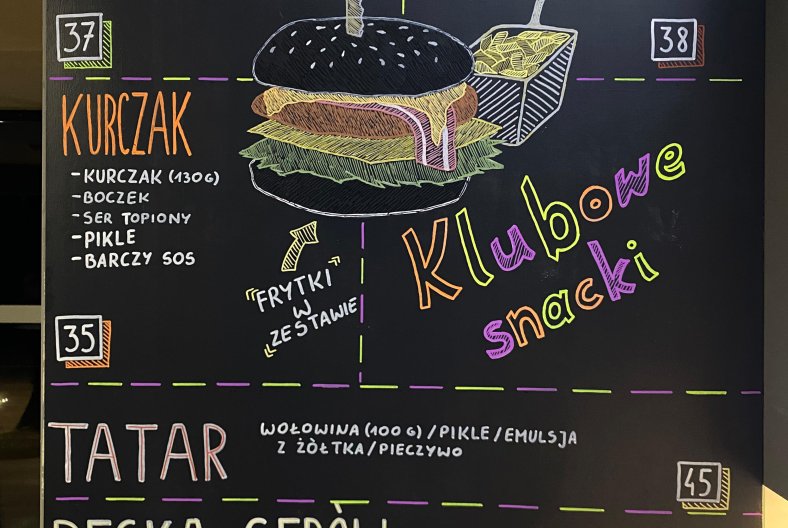 37
38
KURCZAK
- KURCZAK (130G)
- BOCZEK
- SER TOPIONY
- PIKLE
- BARCZY SOS
"FRYTKI"
W
"ZESTAWIE
Klubowe
snacki
35
TATAR
WOŁOWINA (100 G) / PIKLE / EMULSJA
Z ŻÓŁTKA / PIECZYWO
45
DESKA SERÓW